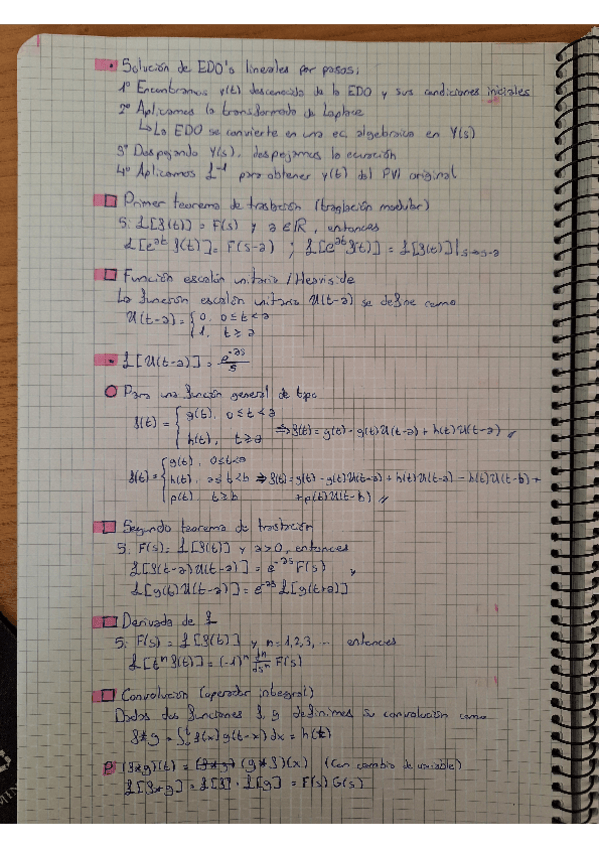 Solución de EDO's lineales por pasos:
1º Encontramos y(t) desconocida de la EDO y sus condiciones iniciales
2º Aplicamos la transformada de Laplace
↳ La EDO se convierte en una ec. algebraica en Y(s)
3º Despejando Y(s), despejamos la ecuación
4º Aplicamos ℒ⁻¹ para obtener y(t) del PVI original
Primer teorema de traslación (traslación modular)
Si ℒ[f(t)] = F(s) y a ∈ ℝ, entonces
ℒ[e^{at} f(t)] = F(s-a) ; ℒ[e^{at} f(t)] = ℒ[f(t)]|_{s→s-a}
Función escalón unitario / Heaviside
La función escalón unitario U(t-a) se define como
U(t-a) = { 0, 0 ≤ t < a
1, t ≥ a
ℒ[U(t-a)] = e^{-as}/s
Para una función general de tipo
f(t) = { g(t), 0 ≤ t < a
h(t), t ≥ a ⇒ f(t) = g(t) - g(t)U(t-a) + h(t)U(t-a)
f(t) = { g(t), 0 ≤ t < a
h(t), a ≤ t < b ⇒ f(t) = g(t) - g(t)U(t-a) + h(t)U(t-a) - h(t)U(t-b) +
p(t) t ≥ b + p(t)U(t-b)
Segundo teorema de traslación
Si F(s) = ℒ[f(t)] y a > 0, entonces
ℒ[f(t-a)U(t-a)] = e^{-as} F(s) ,
ℒ[g(t)U(t-a)] = e^{-as} ℒ[g(t+a)]
Derivada de ℒ
Si F(s) = ℒ[f(t)] y n = 1,2,3, ... entonces
ℒ[tⁿ f(t)] = (-1)ⁿ dⁿ/dsⁿ F(s)
Convolución (operador integral)
Dadas dos funciones f, g definimos su convolución como
f*g = ∫₀ᵗ f(x) g(t-x) dx = h(t)
(f*g)(t) = (g*f)(x) (con cambio de variable)
ℒ[f*g] = ℒ[f] · ℒ[g] = F(s) G(s)